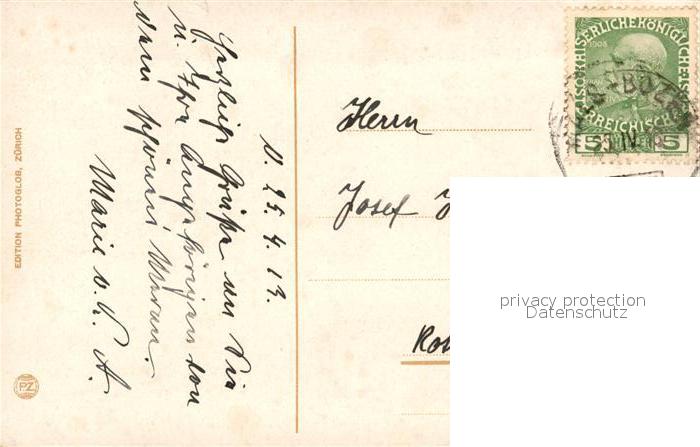 N. 25. 4. 13.
Herzliche Grüße an Sie
u. Ihre Angehörigen von
dem schönen Meran.
Marie v. K. A.
EDITION PHOTOGLOB, ZÜRICH
PZ
Herrn
Josef
1908
KAISERLICHE KÖNIGLICHE
ÖSTERREICHISCHE
5 5
BOZEN
IV
privacy protection
Datenschutz